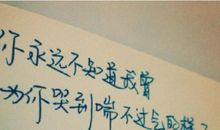 你永远不知道我曾
为你哭到喘不过气的样子